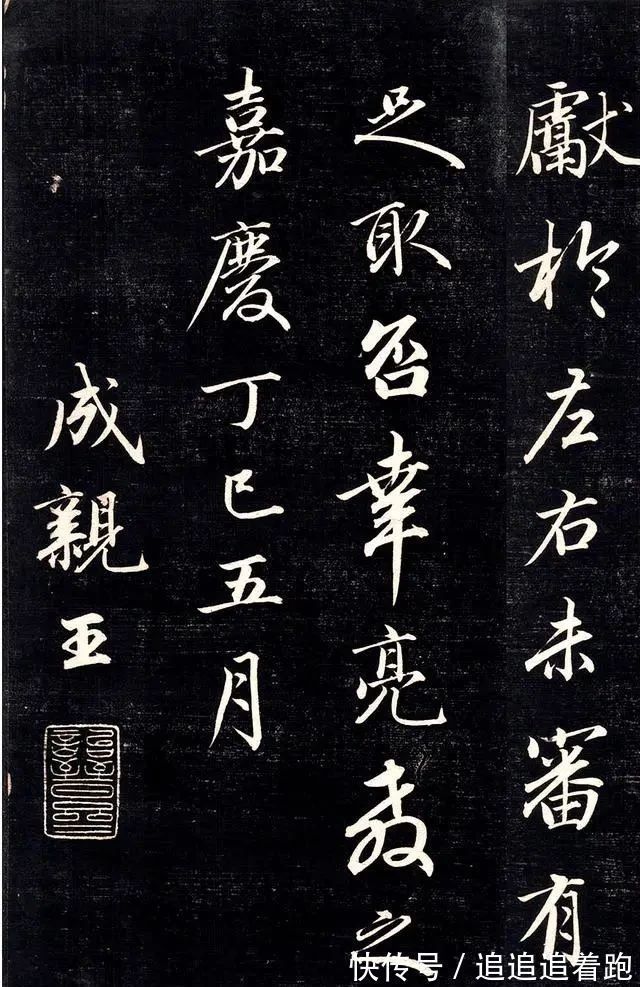 獻於左右未審有
足取否幸亮教之
嘉慶丁巳五月
成親王
快传号 / 追追追着跑